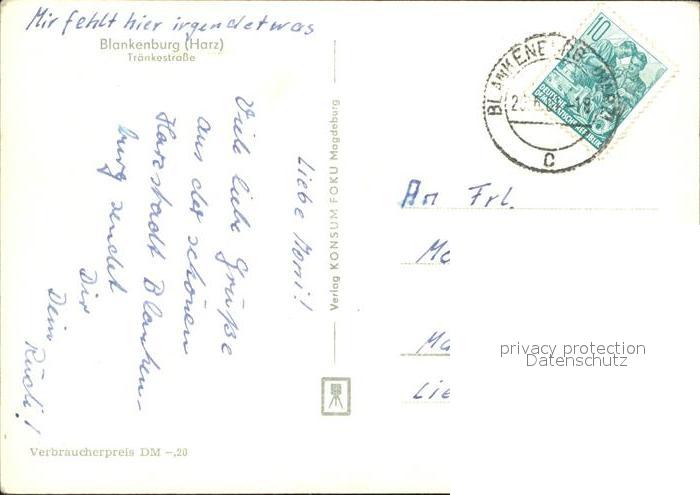 Mir fehlt hier irgendetwas
Blankenburg (Harz)
Tränkestraße
Liebe
Viele liebe Grüße
aus der schönen
Harzstadt Blanken-
burg sendet
Dir
Dein
Rudi!
Verlag KONSUM FOKU Magdeburg
Verbraucherpreis DM -,20
10
DEUTSCHE
DEMOKRATISCHE REPUBLIK
BLANKENBURG
C
An Frl.
Ma
Lie
privacy protection
Datenschutz